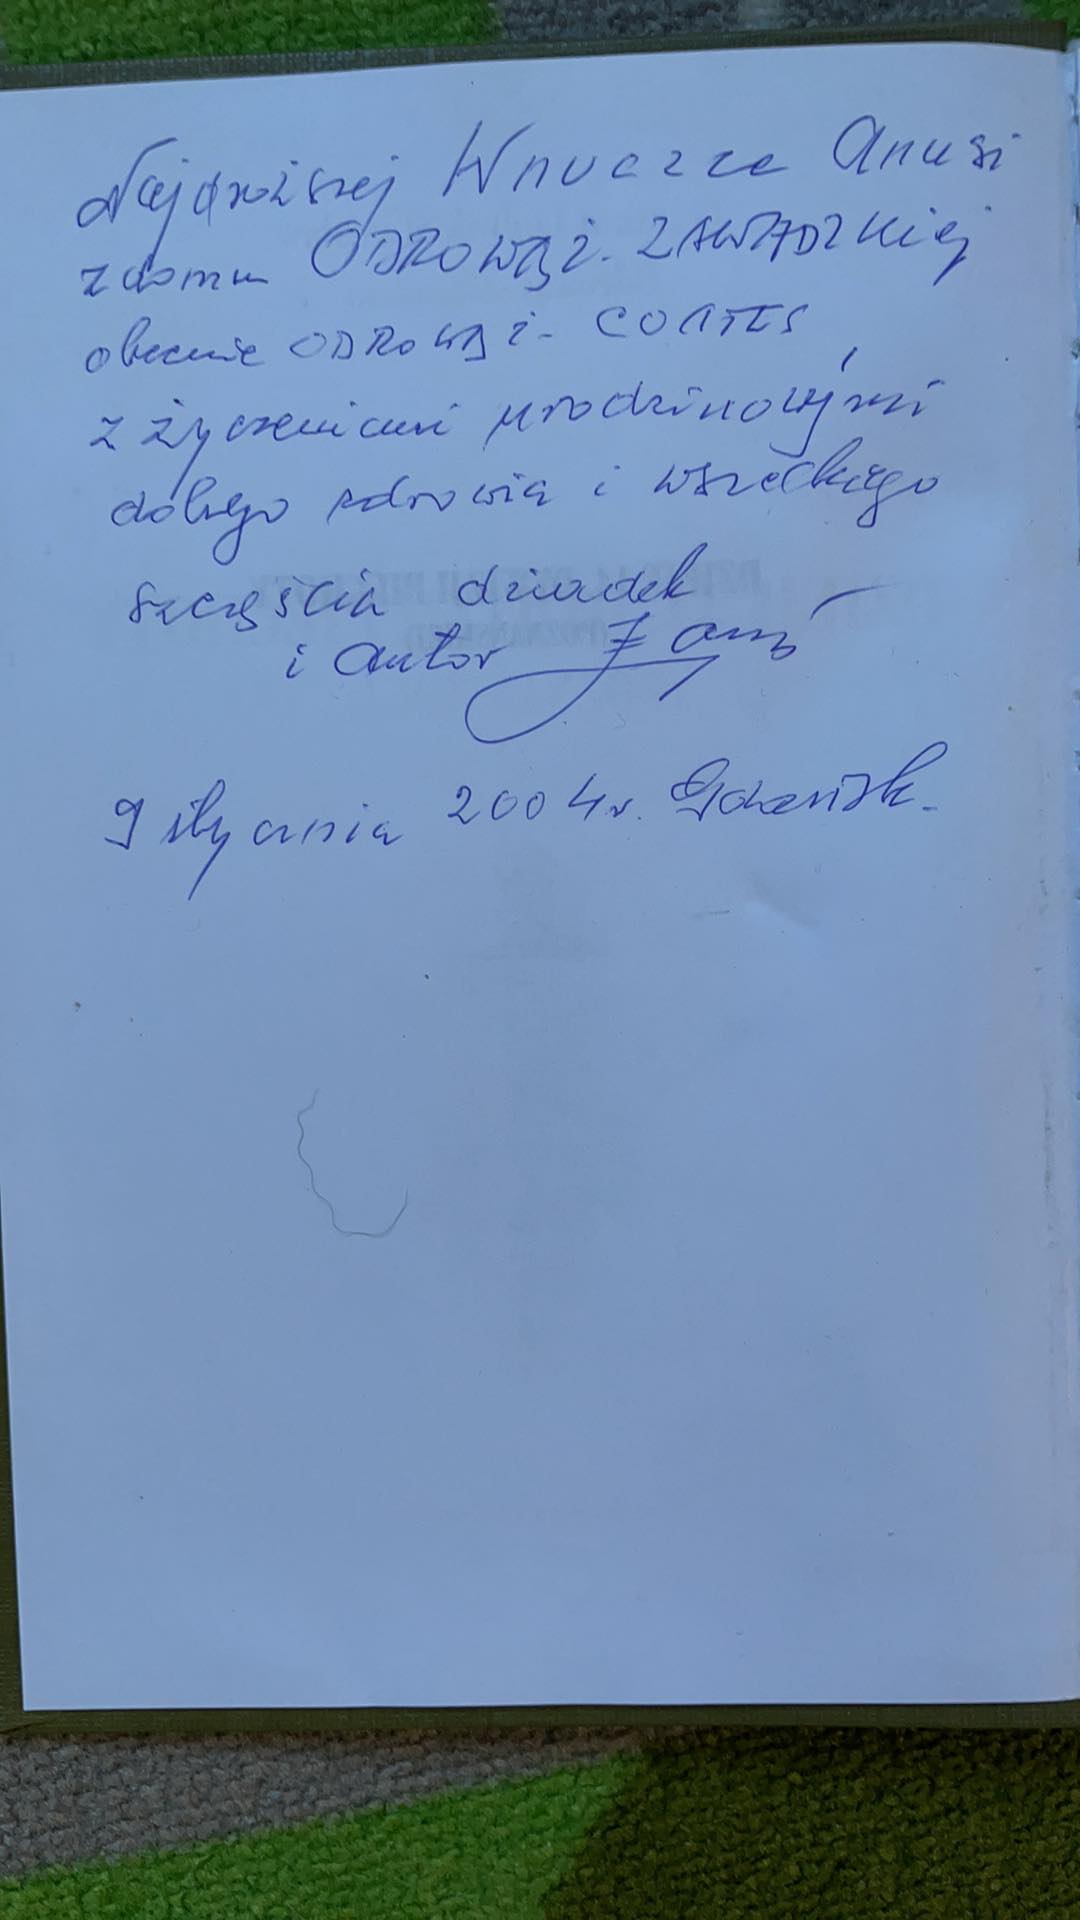 Najdroższej Wnuczce Anusi
z domu ODROWĄŻ-ZAWADZKiej
obecnie ODROWĄŻ-CORTES,
z życzeniami urodzinowymi
dobrego zdrowia i wszelkiego
szczęścia dziadek
i autor
9 stycznia 2004 r. Gdańsk.